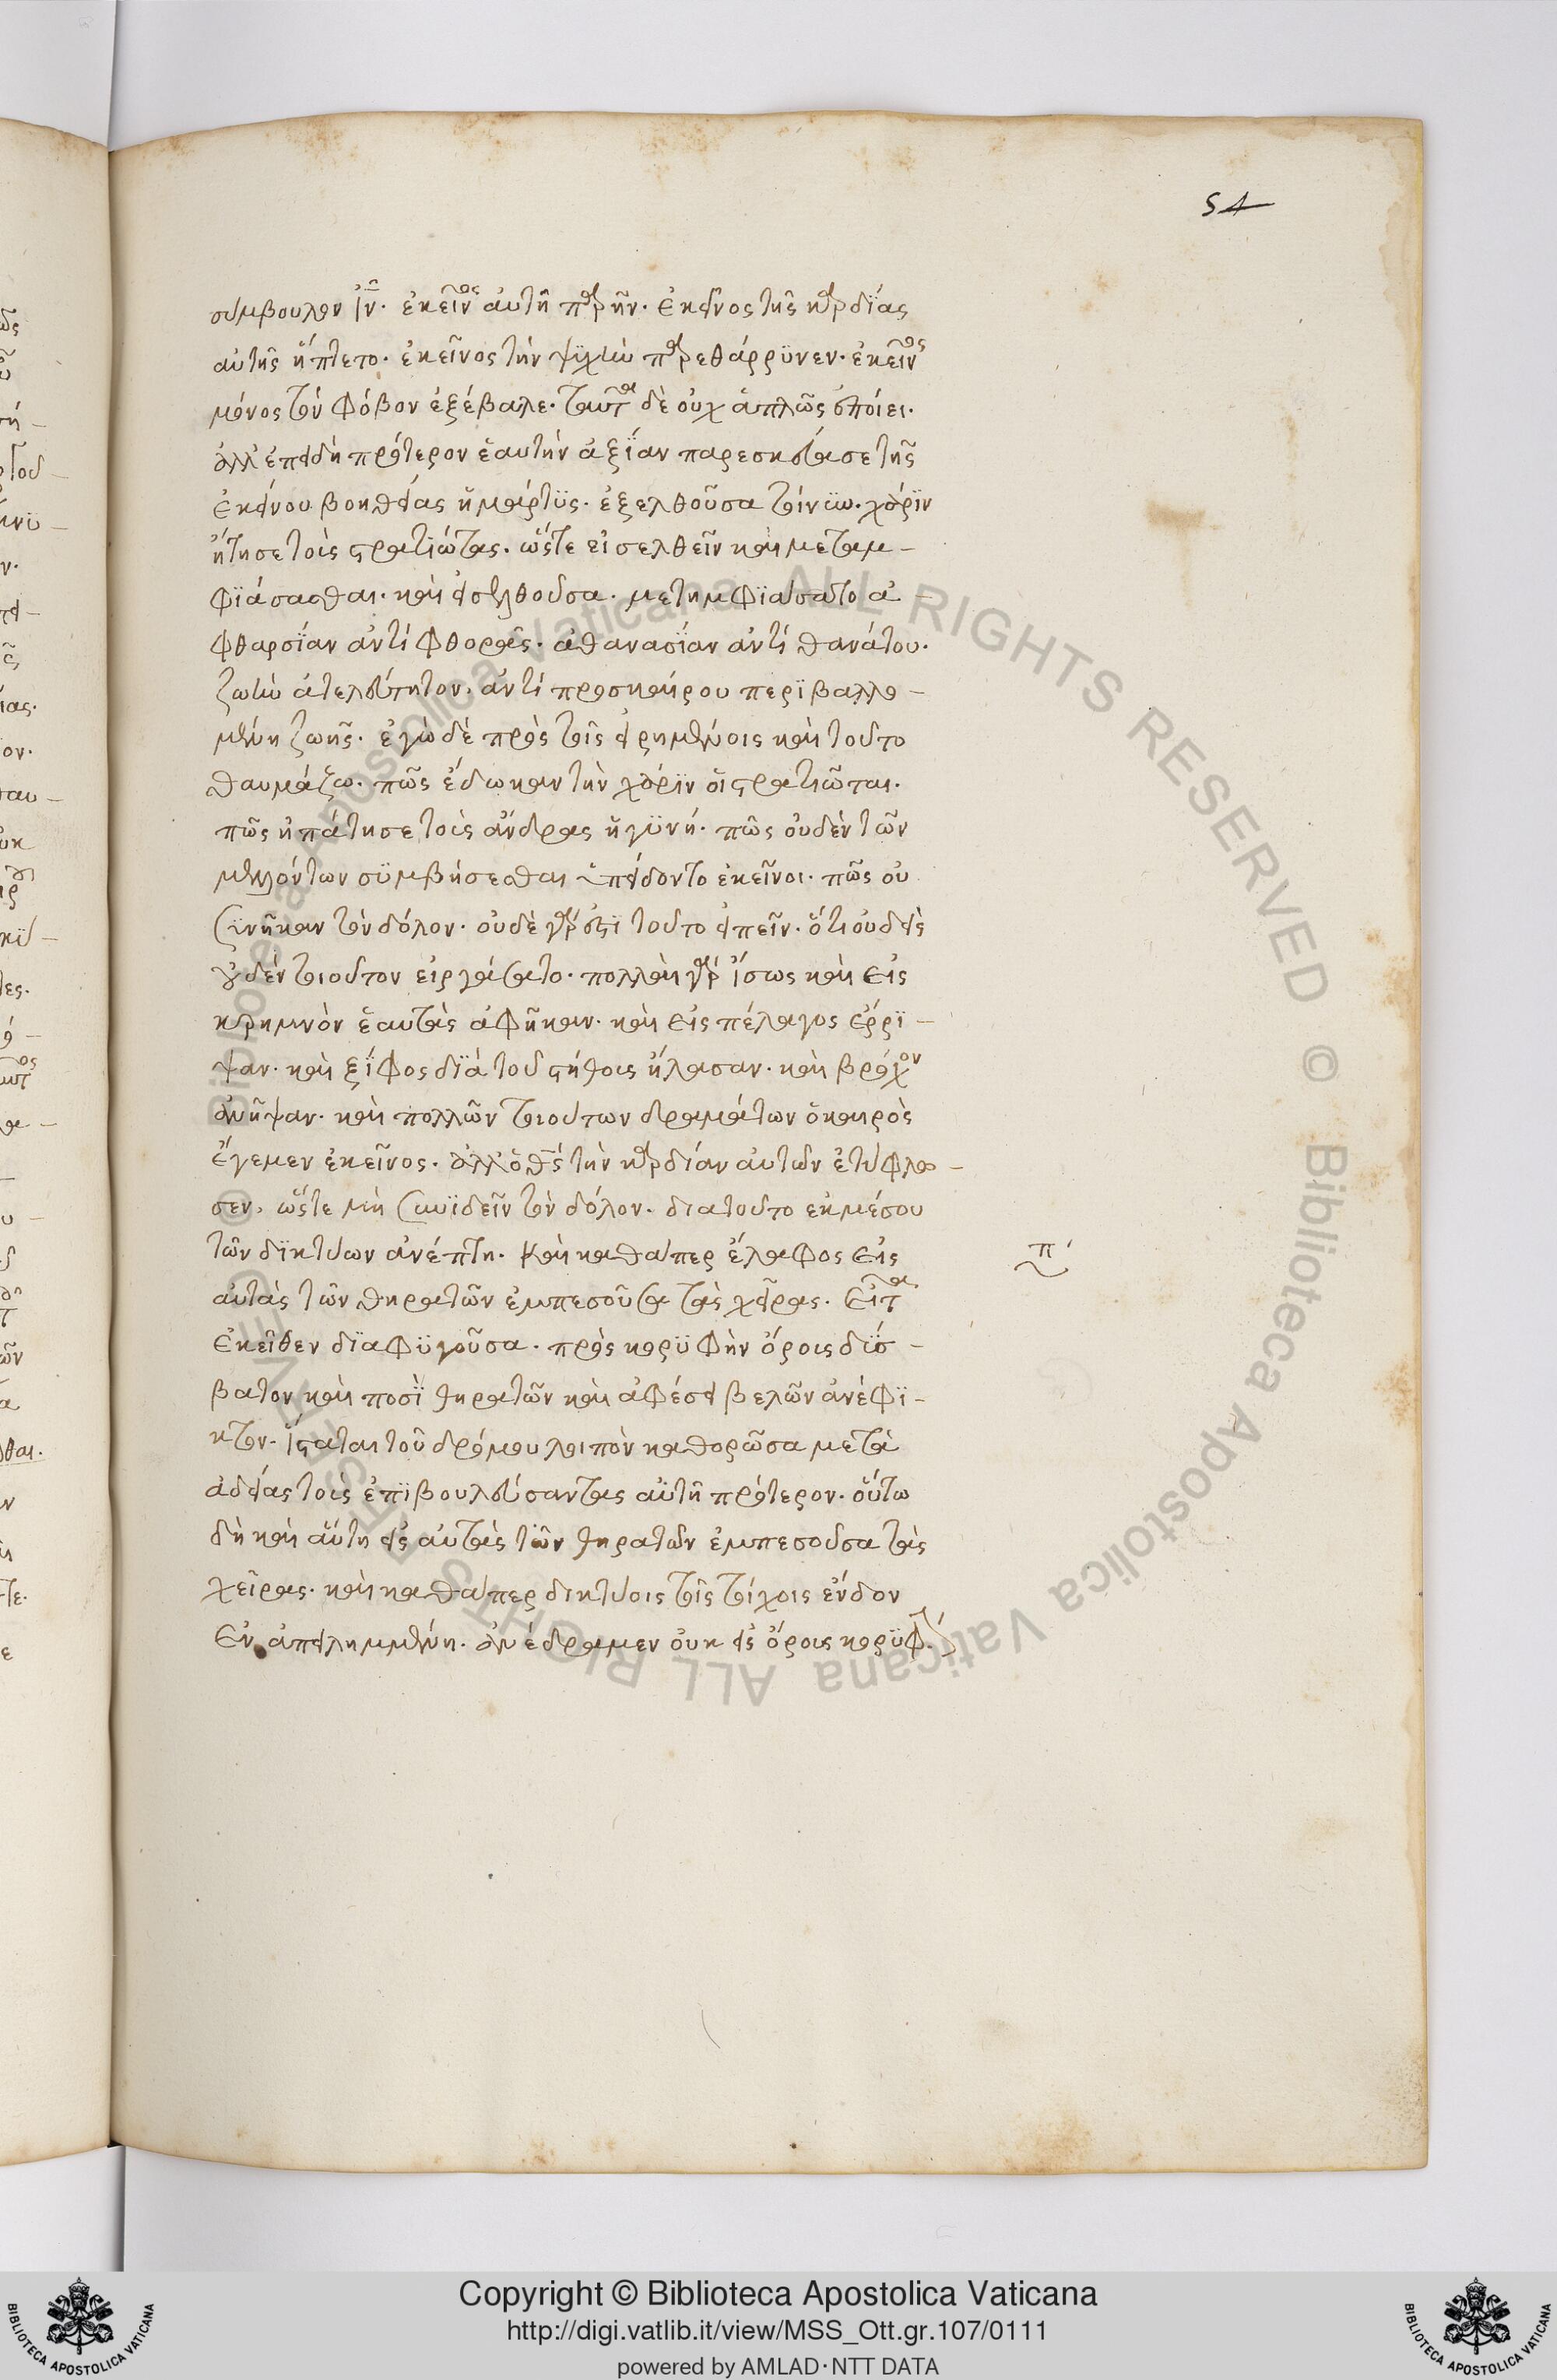 54
σύμβουλον ἰν̅. ἐκεῖνος αὐτῆ παρῆν. ἐκεῖνος τῆς καρδΐας
αὐτῆς ἥπτετο. ἐκεῖνος τὴν ψϋχὴν παρεθάρρϋνεν. ἐκεῖνος
μόνος τὸν φόβον ἐξέβαλε. ταῦτα δὲ οὐχ ἁπλῶς ἐποίει.
ἀλλ' ἐπειδὴ πρότερον ἑαυτὴν ἀξΐαν παρεσκεύασε τῆς
ἐκείνου βοηθείας ἡ μάρτϋς. ἐξελθοῦσα τοίνϋν. χάρϊν
ἤτησε τοὺς στρατιώτας. ὥστε εἰσελθεῖν καὶ μεταμ-
φϊάσασθαι. καὶ εἰσελθοῦσα. μετημφϊάσατο ἀ-
φθαρσΐαν ἀντὶ φθορᾶς. ἀθανασΐαν ἀντὶ θανάτου.
ζωὴν ἀτελεύτητον. ἀντὶ προσκαίρου περϊβαλλο-
μένη ζωῆς. ἐγὼ δὲ πρὸς τοῖς εἰρημένοις καὶ τοῦτο
θαυμάζω. πῶς ἔδωκαν τὴν χάρϊν οἱ στρατιῶται.
πῶς ἠπάτησε τοὺς ἄνδρας ἡ γϋνή. πῶς οὐδὲν τῶν
μελλόντων σϋμβήσεσθαι ὑπείδοντο ἐκεῖνοι. πῶς οὐ
σϋνῆκαν τὸν δόλον. οὐδὲ γάρ ἐστϊ τοῦτο εἰπεῖν. ὅτι οὐδεὶς
οὐδὲν τοιοῦτον εἰργάσατο. πολλαὶ γὰρ ἴσως καὶ εἰς
κρημνὸν ἑαυτὰς ἀφῆκαν. καὶ εἰς πέλαγος ἔρρϊ-
ψαν. καὶ ξΐφος δϊὰ τοῦ στήθους ἤλασαν. καὶ βρόχον
ἀνῆψαν. καὶ πολλῶν τοιούτων δραμάτων ὁ καιρὸς
ἔγεμεν ἐκεῖνος. ἀλλ' ὁ θς̅ τὴν καρδίαν αὐτῶν ἐτύφλω-
σεν. ὥστε μὴ συνϊδεῖν τὸν δόλον. διατοῦτο ἐκ μέσου
τῶν δϊκτύων ἀνέπτη. καὶ καθάπερ ἔλαφος εἰς
αὐτὰς τῶν θηρατῶν ἐμπεσοῦσα τὰς χεῖρας. εἶτα
ἐκεῖθεν δϊαφϋγοῦσα. πρὸς κορϋφὴν ὄρους δϋσ-
βατον καὶ ποσῒ θηρατῶν καὶ ἀφέσει βελῶν ἀνέφϊ-
κτον. ἵσταται τοῦ δρόμου λοιπὸν καθορῶσα μετὰ
ἀδείας τοὺς ἐπϊβουλεύσαντας αὐτῆ πρότερον. οὕτω
δὴ καὶ αὕτη εἰς αὐτὰς τῶν θηρατῶν ἐμπεσοῦσα τὰς
χεῖρας. καὶ καθάπερ δικτύοις τοῖς τοίχοις ἔνδον
ἐναπειλημμένη. ἀνέδραμεν οὐκ εἰς ὄρους κορϋφ.
π
Copyright © Biblioteca Apostolica Vaticana
http://digi.vatlib.it/view/MSS_Ott.gr.107/0111
powered by AMLAD·NTT DATA
BIBLIOTECA APOSTOLICA VATICANA
BIBLIOTECA APOSTOLICA VATICANA
© Biblioteca Apostolica Vaticana ALL RIGHTS RESERVED © Biblioteca Apostolica Vaticana ALL RIGHTS RESERVED